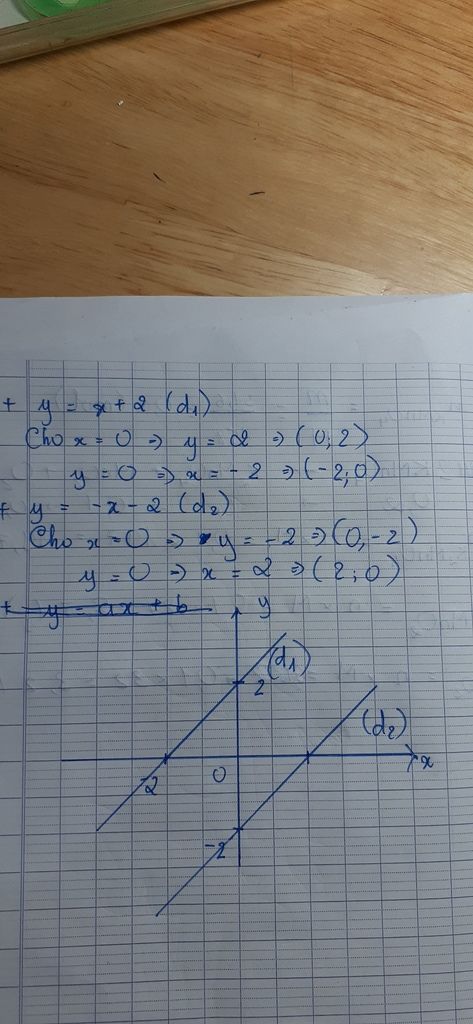 + y = x + 2 (d₁)
Cho x = 0 => y = 2 => (0; 2)
y = 0 => x = - 2 => (-2; 0)
+ y = -x - 2 (d₂)
Cho x = 0 => y = -2 => (0, -2)
y = 0 => x = 2 => (2; 0)
+ y = ax + b
y
(d₁)
2
(d₂)
x
-2
0
-2